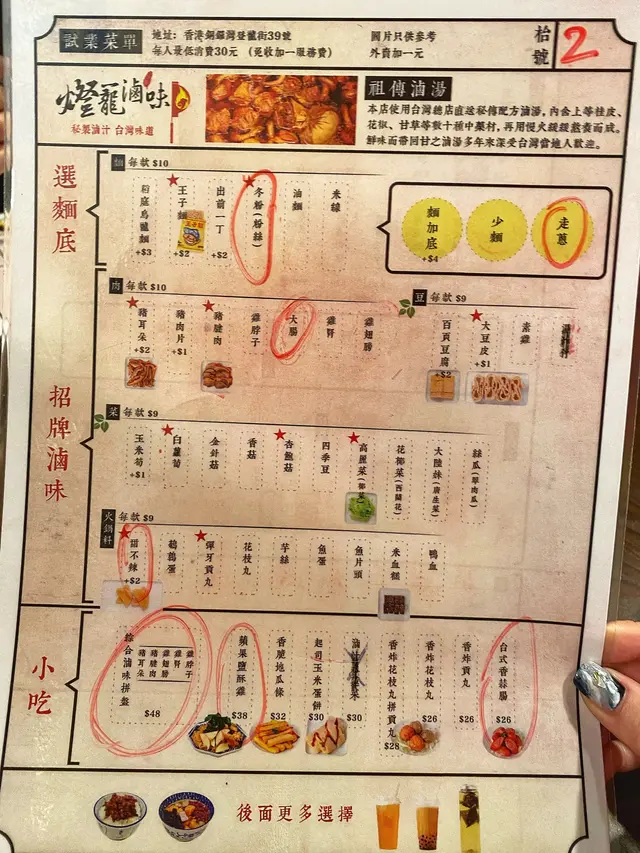 試業菜單
地址: 香港銅鑼灣登龍街39號
每人最低消費30元 (免收加一服務費)
圖片只供參考
外賣加一元
枱號
2
燈籠滷味
秘製滷汁 台灣味道
祖傳滷湯
本店使用台灣總店直送秘傳配方滷湯, 內含上等桂皮、
花椒、甘草等數十種中藥材, 再用慢火緩緩熬煮而成。
鮮味而帶回甘之滷湯多年來深受台灣當地人歡迎。
選麵底
麵 每款 $10
稻庭烏龍麵 +$3
王子麵 +$2
出前一丁 +$2
冬粉(粉絲)
油麵
米線
麵加底 +$4
少麵
走蔥
招牌滷味
肉 每款 $10
豬耳朵 +$2
豬肉片 +$1
豬腱肉
雞脖子
大腸
雞腎
雞翅膀
豆 每款 $9
百頁豆腐 +$2
大豆皮 +$1
素雞
菜 每款 $9
玉米筍 +$1
白蘿蔔
金針菇
香菇
杏鮑菇
四季豆
高麗菜(椰菜)
花椰菜(西蘭花)
大陸妹(唐生菜)
絲瓜(翠肉瓜)
火鍋料 每款 $9
甜不辣 +$2
鵪鶉蛋
彈牙貢丸
花枝丸
芋絲
魚蛋
魚片頭
米血糕
鴨血
小吃
綜合滷味拼盤
雞脖子
雞腎
雞翅膀
豬腱肉
豬耳朵
$48
蘋果鹽酥雞 $38
香脆地瓜條 $32
起司玉米蛋餅 $30
$30
香炸花枝丸拼貢丸 $28
香炸花枝丸 $26
香炸貢丸 $26
台式香蒜腸 $26
後面更多選擇